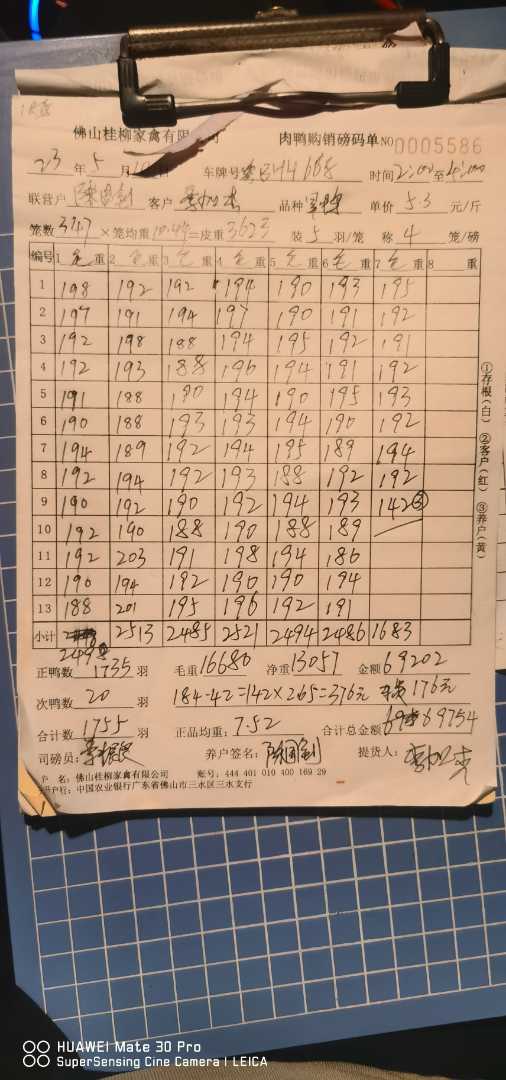 佛山桂柳家禽有限公司 肉鸭购销磅码单 NO 0005586
23 年 5 月 日 车牌号 H4668 时间 2:00 至 4:00
联营户 客户 品种 单价 5.3 元/斤
笼数 347 × 笼均重 10.44 = 皮重 3623 装 5 羽/笼 称 4 笼/磅
编号 1 毛重 2 毛重 3 毛重 4 毛重 5 毛重 6 毛重 7 毛重 8 重
1 198 192 192 194 190 193 195
2 197 191 194 197 190 191 192
3 192 198 188 194 195 192 191
4 192 193 188 196 194 191 192
5 191 188 190 194 190 195 193
6 190 188 193 193 194 190 192
7 194 189 192 194 195 189 194
8 192 194 192 193 188 192 192
9 190 192 190 192 194 193 142③
10 192 190 188 190 188 189
11 192 203 191 198 194 186
12 190 194 192 190 190 194
13 188 201 195 196 192 191
小计 2498 2513 2485 2521 2494 2486 1683
正鸭数 1735 羽 毛重 16680 净重 13057 金额 69202
次鸭数 20 184-42=142×265=376元 176元
合计数 1755 羽 正品均重: 7.52 合计总金额 69754
司磅员: 养户签名: 提货人:
户 名: 佛山桂柳家禽有限公司 账号: 444 401 010 400 169 29
开户行: 中国农业银行广东省佛山市三水区三水支行
①存根(白) ②客户(红) ③养户(黄)
HUAWEI Mate 30 Pro
SuperSensing Cine Camera | LEICA